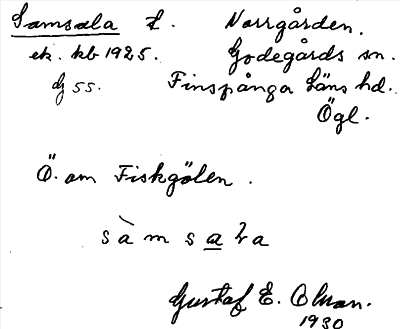 Samsala l. Norrgården.
ek. kb 1925. Godegårds sn.
G 55. Finspånga läns hd.
Ögl.
Ö. om Fiskgölen.
sàmsaɫa
Gustaf E. Olman.
1930